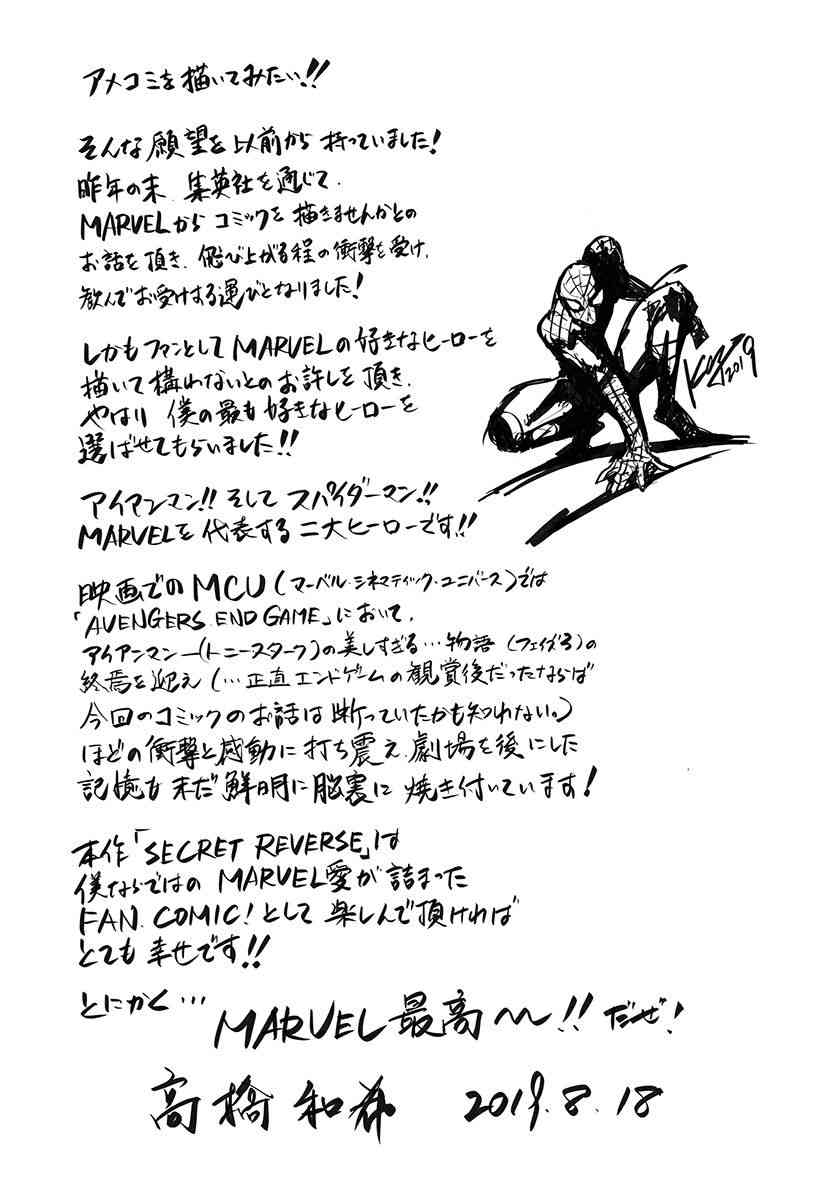 アメコミを描いてみたい!!
そんな願望を以前から持っていました!
昨年の末、集英社を通じて、
MARVELからコミックを描きませんかとの
お話を頂き、飛び上がる程の衝撃を受け、
歓んでお受けする運びとなりました!
しかもファンとしてMARVELの好きなヒーローを
描いて構わないとのお許しを頂き、
やはり 僕の最も好きなヒーローを
選ばせてもらいました!!
2019
アイアンマン!! そして スパイダーマン!!
MARVELを代表する二大ヒーローです!!
映画でのMCU(マーベル・シネマティック・ユニバース)では
「AVENGERS END GAME」において、
アイアンマン―(トニースターク)の美しすぎる…物語(フェイズ3)の
終焉を迎え(…正直エンドゲームの観賞後だったならば
今回のコミックのお話は断っていたかも知れない。)
ほどの衝撃と感動に打ち震え、劇場を後にした
記憶も未だ鮮明に脳裏に焼き付いています!
本作「SECRET REVERSE」は
僕ならではのMARVEL愛が詰まった
FAN COMIC!として楽しんで頂ければ
とても幸せです!!
とにかく…
MARVEL最高〜〜!! だぜ!
高橋和希 2019.8.18